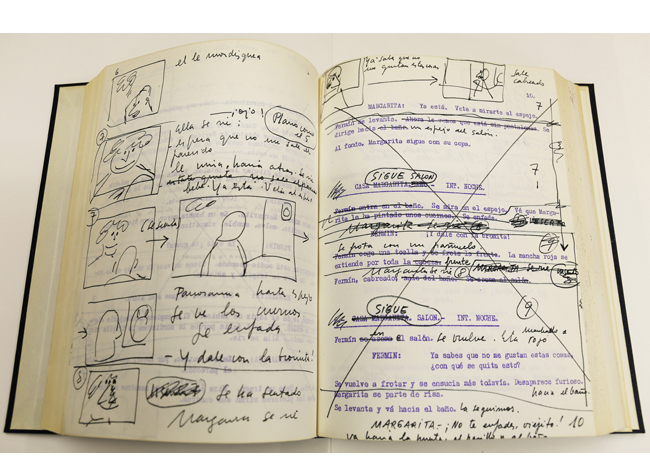 6
el le mordisquea
¡ojo!
Plano como
el 5
Ella se ríe:
espera que no me salga
parecido
le mira, hacia atrás. Se
bebé. Ya está. Vete al espejo
(Se sienta)
Panorama hasta espejo
se ve los cuernos
se enfada
- Y dale con la bromita!
8
Se ha sentado
Margarita se ríe
Ya sabe que no
me gustan estas cosas
Sale
cabreado
10.
7
MARGARITA: Ya está. Vete a mirarte al espejo.
Fermín se levanta. Ahora le vemos que está sin pantalones. Se
dirige hacia el baño. un espejo del salón.
Al fondo, Margarita sigue con su copa.
7
1
SIGUE SALON
CASA MARGARITA. BAÑO.- INT. NOCHE.
Fermín entra en el baño. Se mira en el espejo. Vé que Marga-
rita le ha pintado unos cuernos. Se enfada.
Margarita
FERMIN: ¡Y dale con la bromita!
se frota con un pañuelo
Fermín coge una toalla y se frota la frente. La mancha roja se
extiende por toda la cabeza. frente
Margarita se ríe 8
Fermín, cabreado, sale del baño. Se asoma al salón.
9
SIGUE
CASA MARGARITA. SALON.- INT. NOCHE.
en
Fermín se asoma al salón. se vuelve. Está manchado a
rojo
FERMIN: Ya sabes que no me gustan estas cosas
¿con qué se quita esto?
Se vuelve a frotar y se ensucia más todavía. Desaparece furioso.
Margarita se parte de risa.
hacia el baño.
Se levanta y vá hacia el baño. La seguimos.
MARGARITA.- ¡No te enfades, viejito! 10